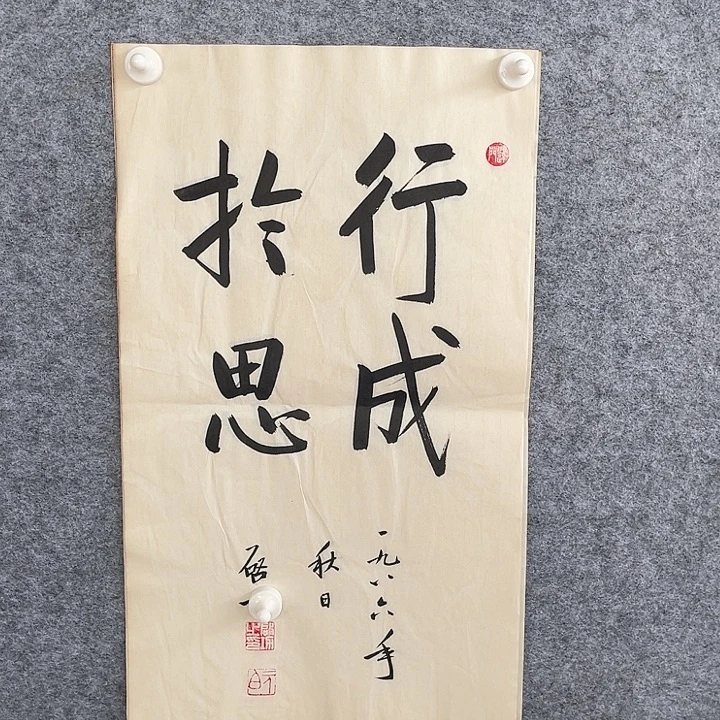 行成
於思
一九八六年
秋日
啓